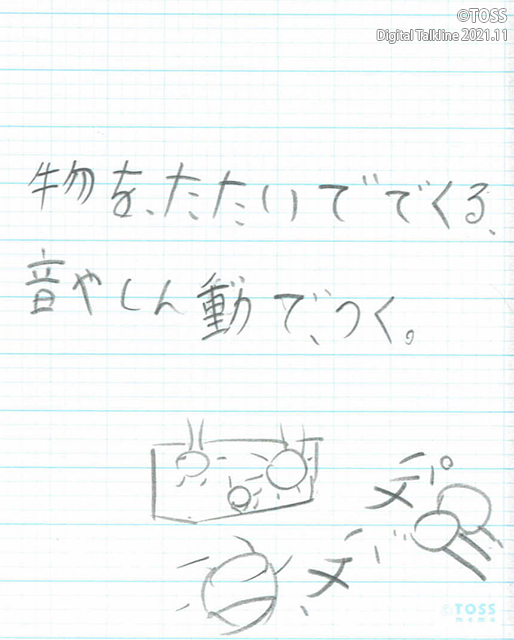 ©TOSS
Digital Talkline 2021.11
物を、たたいてででくる、
音やしん動で、つく。
©TOSS
memo